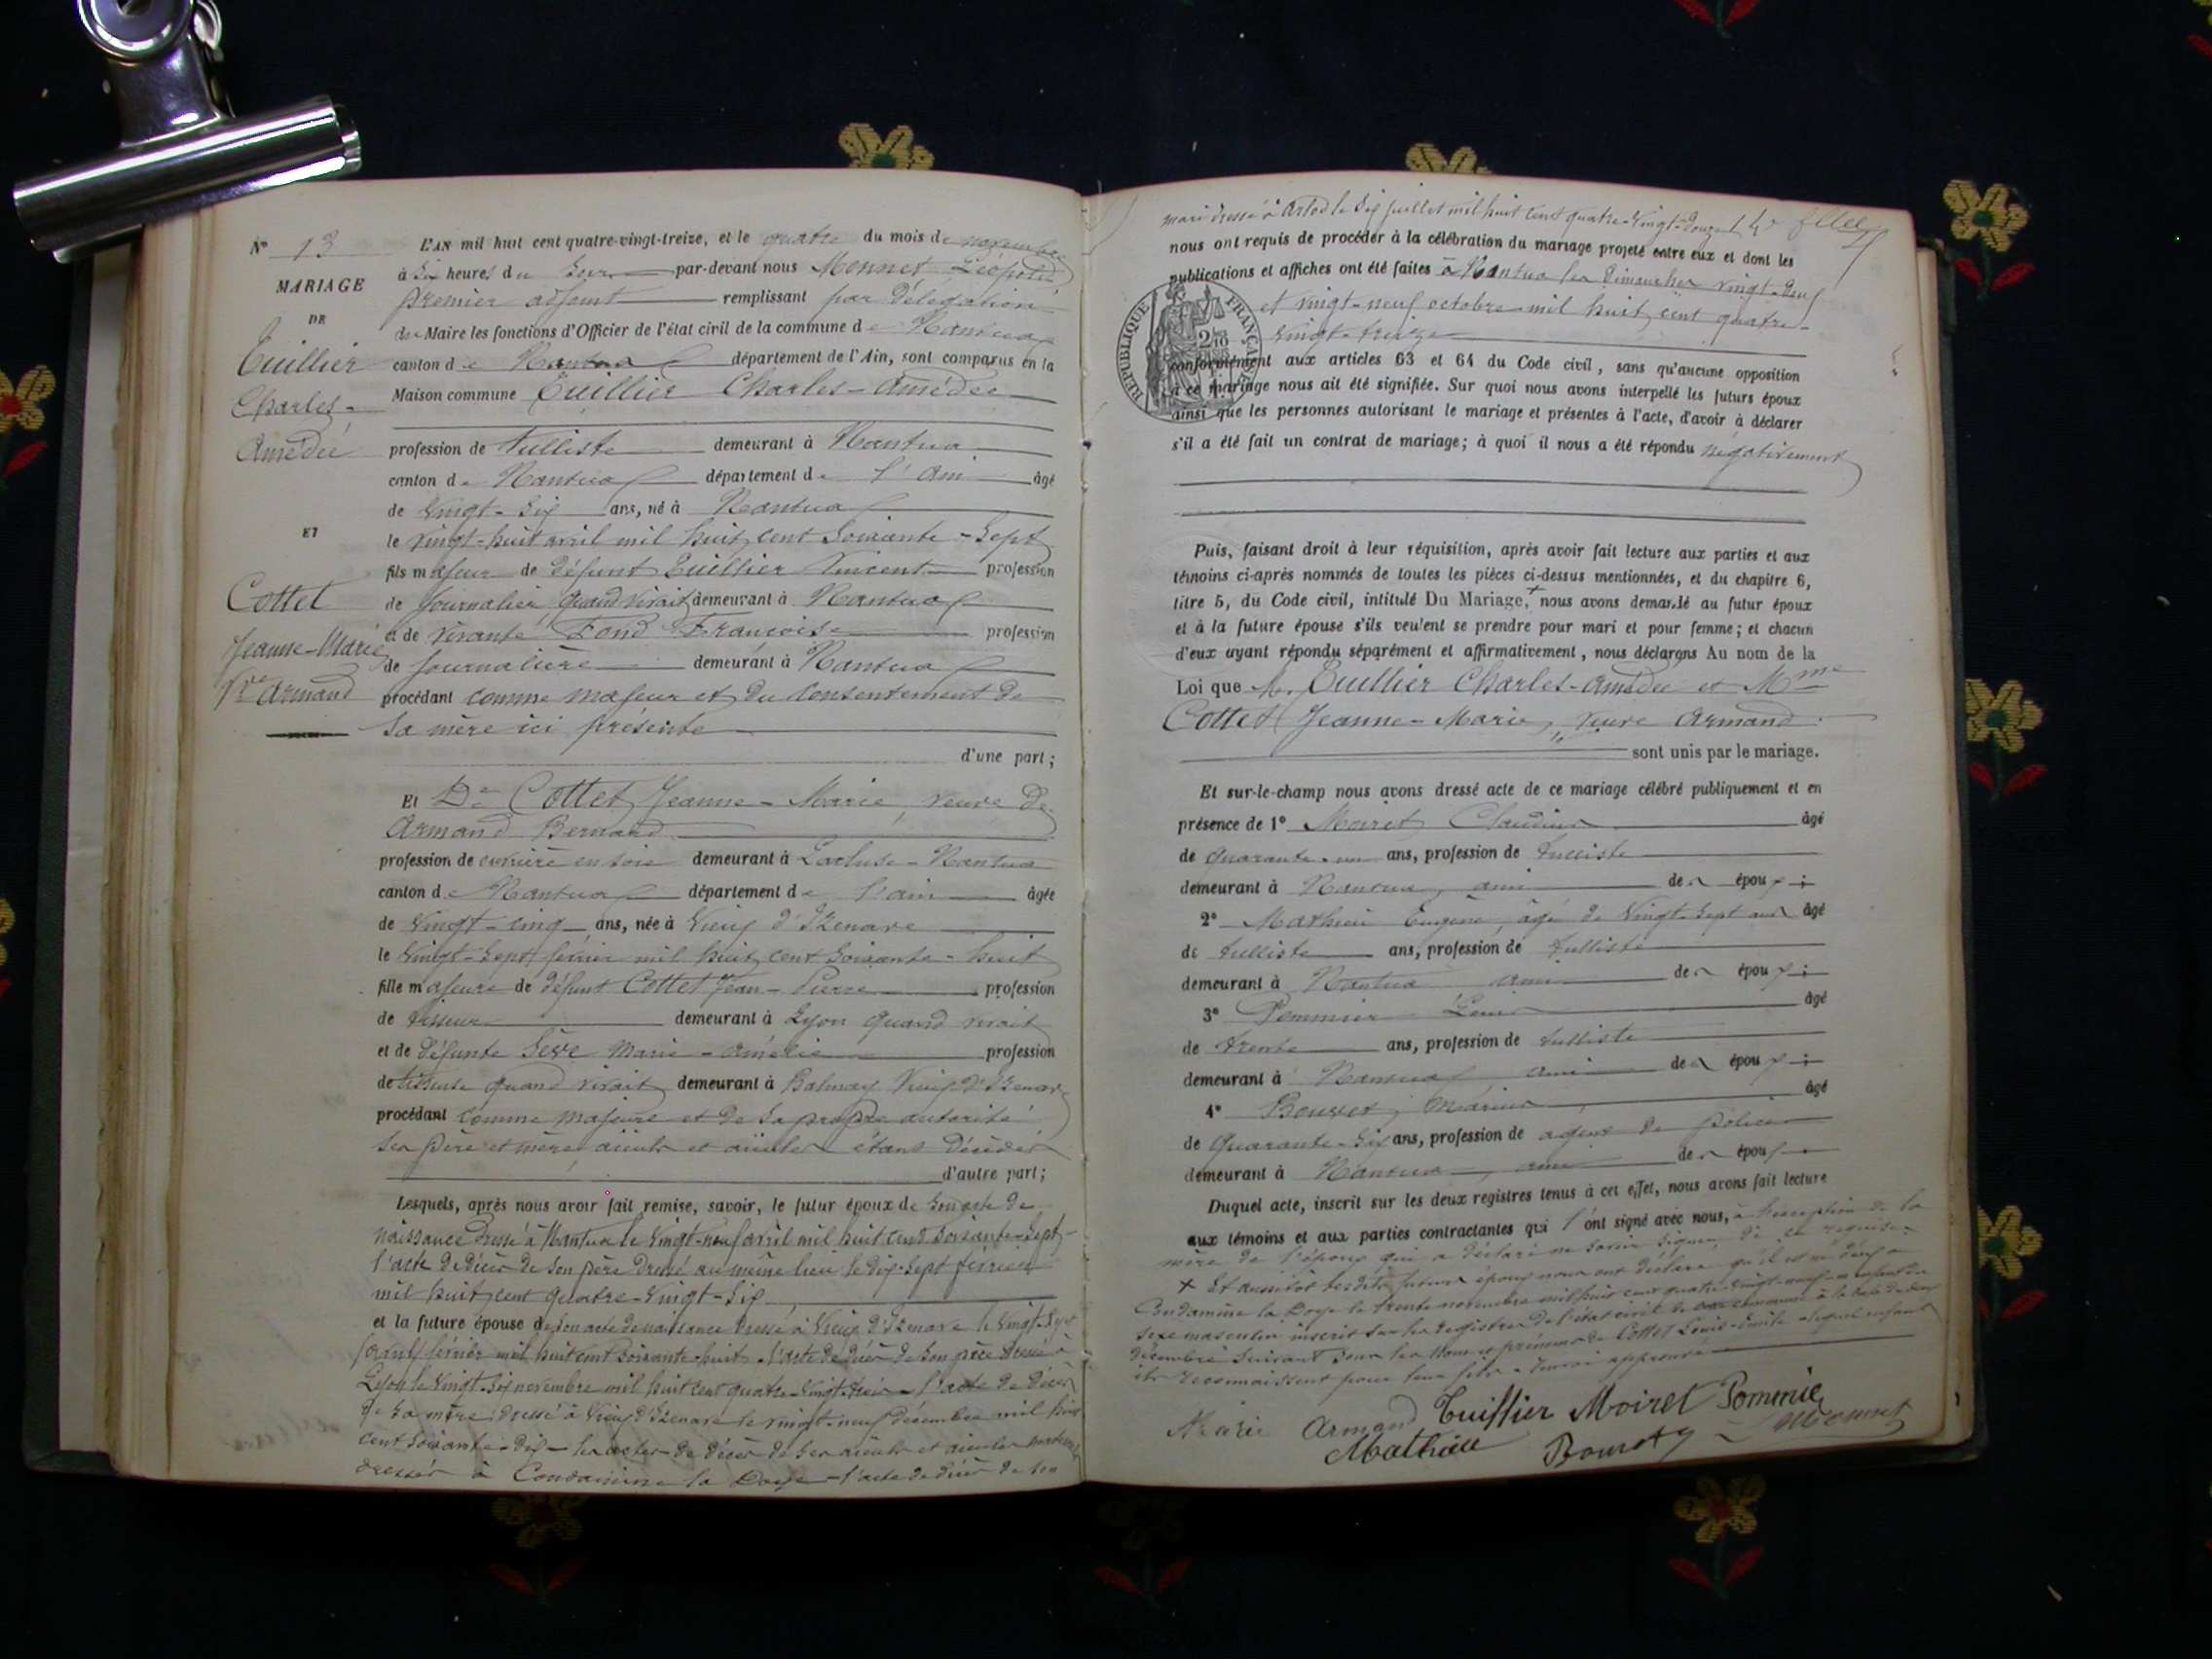 N° 13
MARIAGE
DE
Tuillier
Charles-
Amédée
ET
Cottet
Jeanne-Marie
Vve Armand
L'AN mil huit cent quatre-vingt-treize, et le quatre du mois de novembre
à six heures du soir par-devant nous Monnet Léopold
premier adjoint remplissant par délégation
du Maire les fonctions d'Officier de l'état civil de la commune de Nantua
canton de Nantua département de l'Ain, sont comparus en la
Maison commune Tuillier Charles-Amédée
profession de Tulliste demeurant à Nantua
canton de Nantua département de l'Ain âgé
de vingt-six ans, né à Nantua
le vingt-huit avril mil huit cent soixante-sept
fils majeur de défunt Tuillier Vincent profession
de journalier quand vivait demeurant à Nantua
et de vivante Fond Françoise profession
de journalière demeurant à Nantua
procédant comme majeur et du consentement de
sa mère ici présente
d'une part;
Et De Cottet Jeanne-Marie, veuve de
Armand Bernard
profession de ouvrière en soie demeurant à Lacluse-Nantua
canton de Nantua département de l'ain âgée
de vingt-cinq ans, née à Vieux d'Izenave
le vingt-sept février mil huit cent soixante-huit
fille majeure de défunt Cottet Jean-Pierre profession
de tisseur demeurant à Lyon quand vivait
et de défunte Sève Marie-Amélie profession
de tisseuse quand vivait demeurant à Balmay Vieux d'Izenave
procédant comme majeure et de sa propre autorité
ses père et mère, aïeuls et aïeules étant décédés
d'autre part;
Lesquels, après nous avoir fait remise, savoir, le futur époux de son acte de
naissance dressé à Nantua le vingt-neuf avril mil huit cent soixante-sept-
l'acte de décès de son père dressé au même lieu le dix-sept février
mil huit cent quatre-vingt-six
et la future épouse de son acte de naissance dressé à Vieux d'Izenave le vingt-sept
février mil huit cent soixante-huit - l'acte de décès de son père dressé à
Lyon le vingt-six novembre mil huit cent quatre-vingt-trois - l'acte de décès
de sa mère dressé à Vieux d'Izenave le vingt-neuf décembre mil huit
cent soixante-dix - les actes de décès de ses aïeuls et aïeules
dressés à Condamine la Doye - l'acte de décès de son
mari dressé à le six juillet mil huit cent quatre-vingt-douze
nous ont requis de procéder à la célébration du mariage projeté entre eux et dont les
publications et affiches ont été faites à Nantua les dimanches vingt-deux
et vingt-neuf octobre mil huit cent quatre-
vingt-treize
RÉPUBLIQUE FRANÇAISE
conformément aux articles 63 et 64 du Code civil, sans qu'aucune opposition
à ce mariage nous ait été signifiée. Sur quoi nous avons interpellé les futurs époux
ainsi que les personnes autorisant le mariage et présentes à l'acte, d'avoir à déclarer
s'il a été fait un contrat de mariage; à quoi il nous a été répondu négativement
Puis, faisant droit à leur réquisition, après avoir fait lecture aux parties et aux
témoins ci-après nommés de toutes les pièces ci-dessus mentionnées, et du chapitre 6,
titre 5, du Code civil, intitulé Du Mariage, + nous avons demandé au futur époux
et à la future épouse s'ils veulent se prendre pour mari et pour femme; et chacun
d'eux ayant répondu séparément et affirmativement, nous déclarons Au nom de la
Loi que M. Tuillier Charles-Amédée et Mme
Cottet Jeanne-Marie, veuve Armand
sont unis par le mariage.
Et sur-le-champ nous avons dressé acte de ce mariage célébré publiquement et en
présence de 1° Moiret Claudius âgé
de quarante-un ans, profession de tulliste
demeurant à Nantua, ami des époux;
2° Mathieu Eugène, âgé de vingt-sept ans âgé
de tulliste ans, profession de tulliste
demeurant à Nantua ami des époux;
3° Pommier Louis âgé
de trente ans, profession de tulliste
demeurant à Nantua ami des époux;
4° Marius âgé
de quarante-six ans, profession de agent de police
demeurant à Nantua, ami des époux
Duquel acte, inscrit sur les deux registres tenus à cet effet, nous avons fait lecture
aux témoins et aux parties contractantes qui l'ont signé avec nous, à l'exception de la
mère de l'époux qui a déclaré ne savoir signer, de ce requise
+ Et aussitôt lesdits futurs époux nous ont déclaré qu'il est né d'eux à
Condamine la Doye le trente novembre mil huit cent quatre-vingt-neuf un enfant du
sexe masculin inscrit sur les registres de l'état civil de
décembre suivant sous les noms et prénoms de Cottet Louis-Emile - lequel enfant
ils reconnaissent pour leur fils - renvoi approuvé
Marie Armand Tuillier Moiret Pommier
Mathieu Monnet